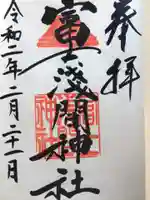 奉拝
冨士浅間神社
令和二年二月二十一日